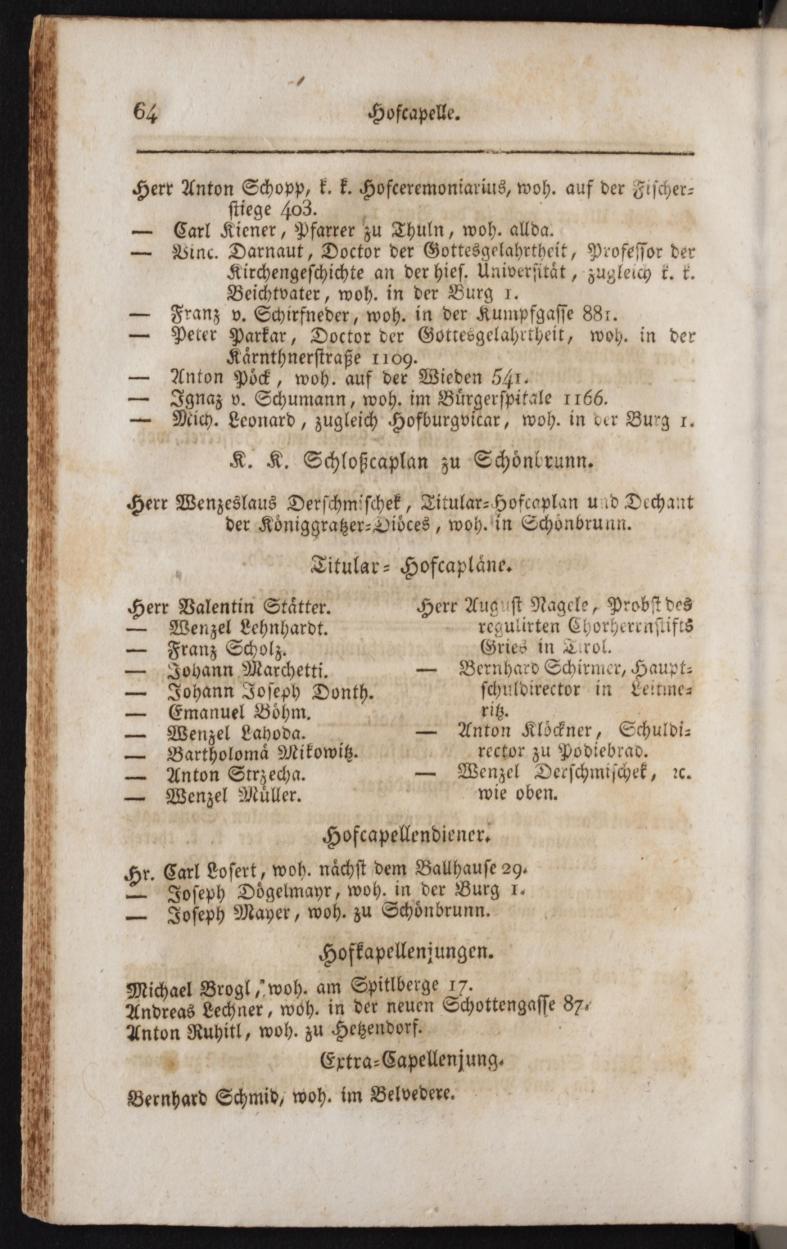 64 Hofcapelle.
Herr Anton Schopp, k. k. Hofceremoniarius, woh. auf der Fischer-
stiege 403.
— Carl Kiener, Pfarrer zu Thuln, woh. allda.
— Vinc. Darnaut, Doctor der Gottesgelahrtheit, Professor der
Kirchengeschichte an der hies. Universität, zugleich k. k.
Beichtvater, woh. in der Burg 1.
— Franz v. Schirfneder, woh. in der Kumpfgasse 881.
— Peter Parkar, Doctor der Gottesgelahrtheit, woh. in der
Kärnthnerstraße 1109.
— Anton Pöck, woh. auf der Wieden 541.
— Ignaz v. Schumann, woh. im Bürgerspitale 1166.
— Mich. Leonard, zugleich Hofburgvicar, woh. in der Burg 1.
K. K. Schloßcaplan zu Schönbrunn.
Herr Wenzeslaus Derschmischek, Titular-Hofcaplan und Dechant
der Königgratzer-Diöces, woh. in Schönbrunn.
Titular-Hofcapläne.
Herr Valentin Stätter.
— Wenzel Lehnhardt.
— Franz Scholz.
— Johann Marchetti.
— Johann Joseph Donth.
— Emanuel Böhm.
— Wenzel Lahoda.
— Bartholomä Mikowitz.
— Anton Strzecha.
— Wenzel Müller.
Herr August Nagele, Probst des
regulirten Chorherrnstifts
Gries in Tirol.
— Bernhard Schirmer, Haupt-
schuldirector in Leitme-
ritz.
— Anton Klöckner, Schuldi-
rector zu Podiebrad.
— Wenzel Derschmischek, ꝛc.
wie oben.
Hofcapellendiener.
Hr. Carl Losert, woh. nächst dem Ballhause 29.
— Joseph Dögelmayr, woh. in der Burg 1.
— Joseph Mayer, woh. zu Schönbrunn.
Hofkapellenjungen.
Michael Brogl, woh. am Spitlberge 17.
Andreas Lechner, woh. in der neuen Schottengasse 87.
Anton Ruhitl, woh. zu Hetzendorf.
Extra-Capellenjung.
Bernhard Schmid, woh. im Belvedere.